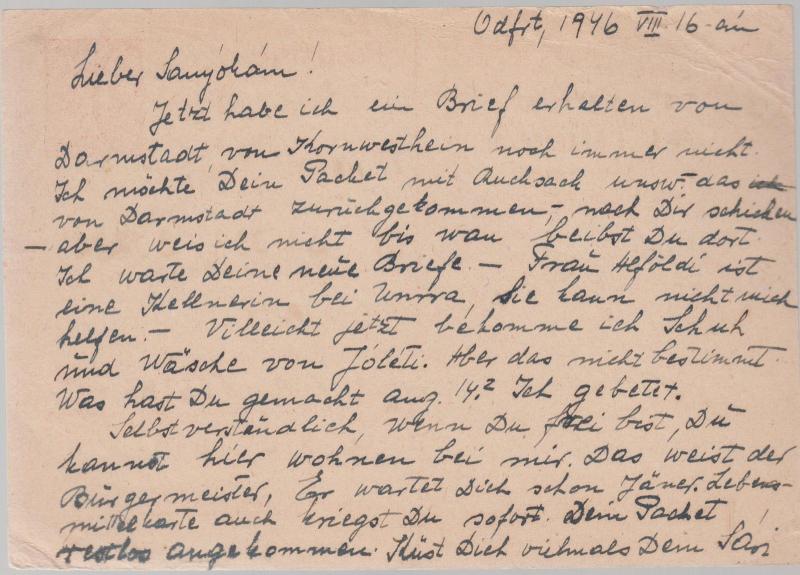 Odfrt, 1946 VIII 16-án
Lieber Sanyókám!
Jetzt habe ich ein Brief erhalten von
Darmstadt, von Kornwesthein noch immer nicht.
Ich möchte Dein Packet mit Rucksack unsw. das ich
von Darmstadt zurückgekommen, - nach Dir schicken
- aber weis ich nicht bis wan beibst Du dort.
Ich warte Deine neue Briefe. - Frau Alföldi ist
eine Kellnerin bei Unrra, Sie kann nicht mich
helfen. - Villeicht jetzt bekomme ich Schuh
und Wäsche von Jóléti. Aber das nicht bestimmt.
Was hast Du gemacht aug. 14.? Ich gebetet.
Selbstverständlich, wenn Du frei bist, Du
kannst hier wohnen bei mir. Das weist der
Bürgermeister, Er wartet Dich schon Jäner. Lebens-
mittelkarte auch kriegst Du sofort. Dein Packet
restlos angekommen. Küst Dich vielmals Dein Sári